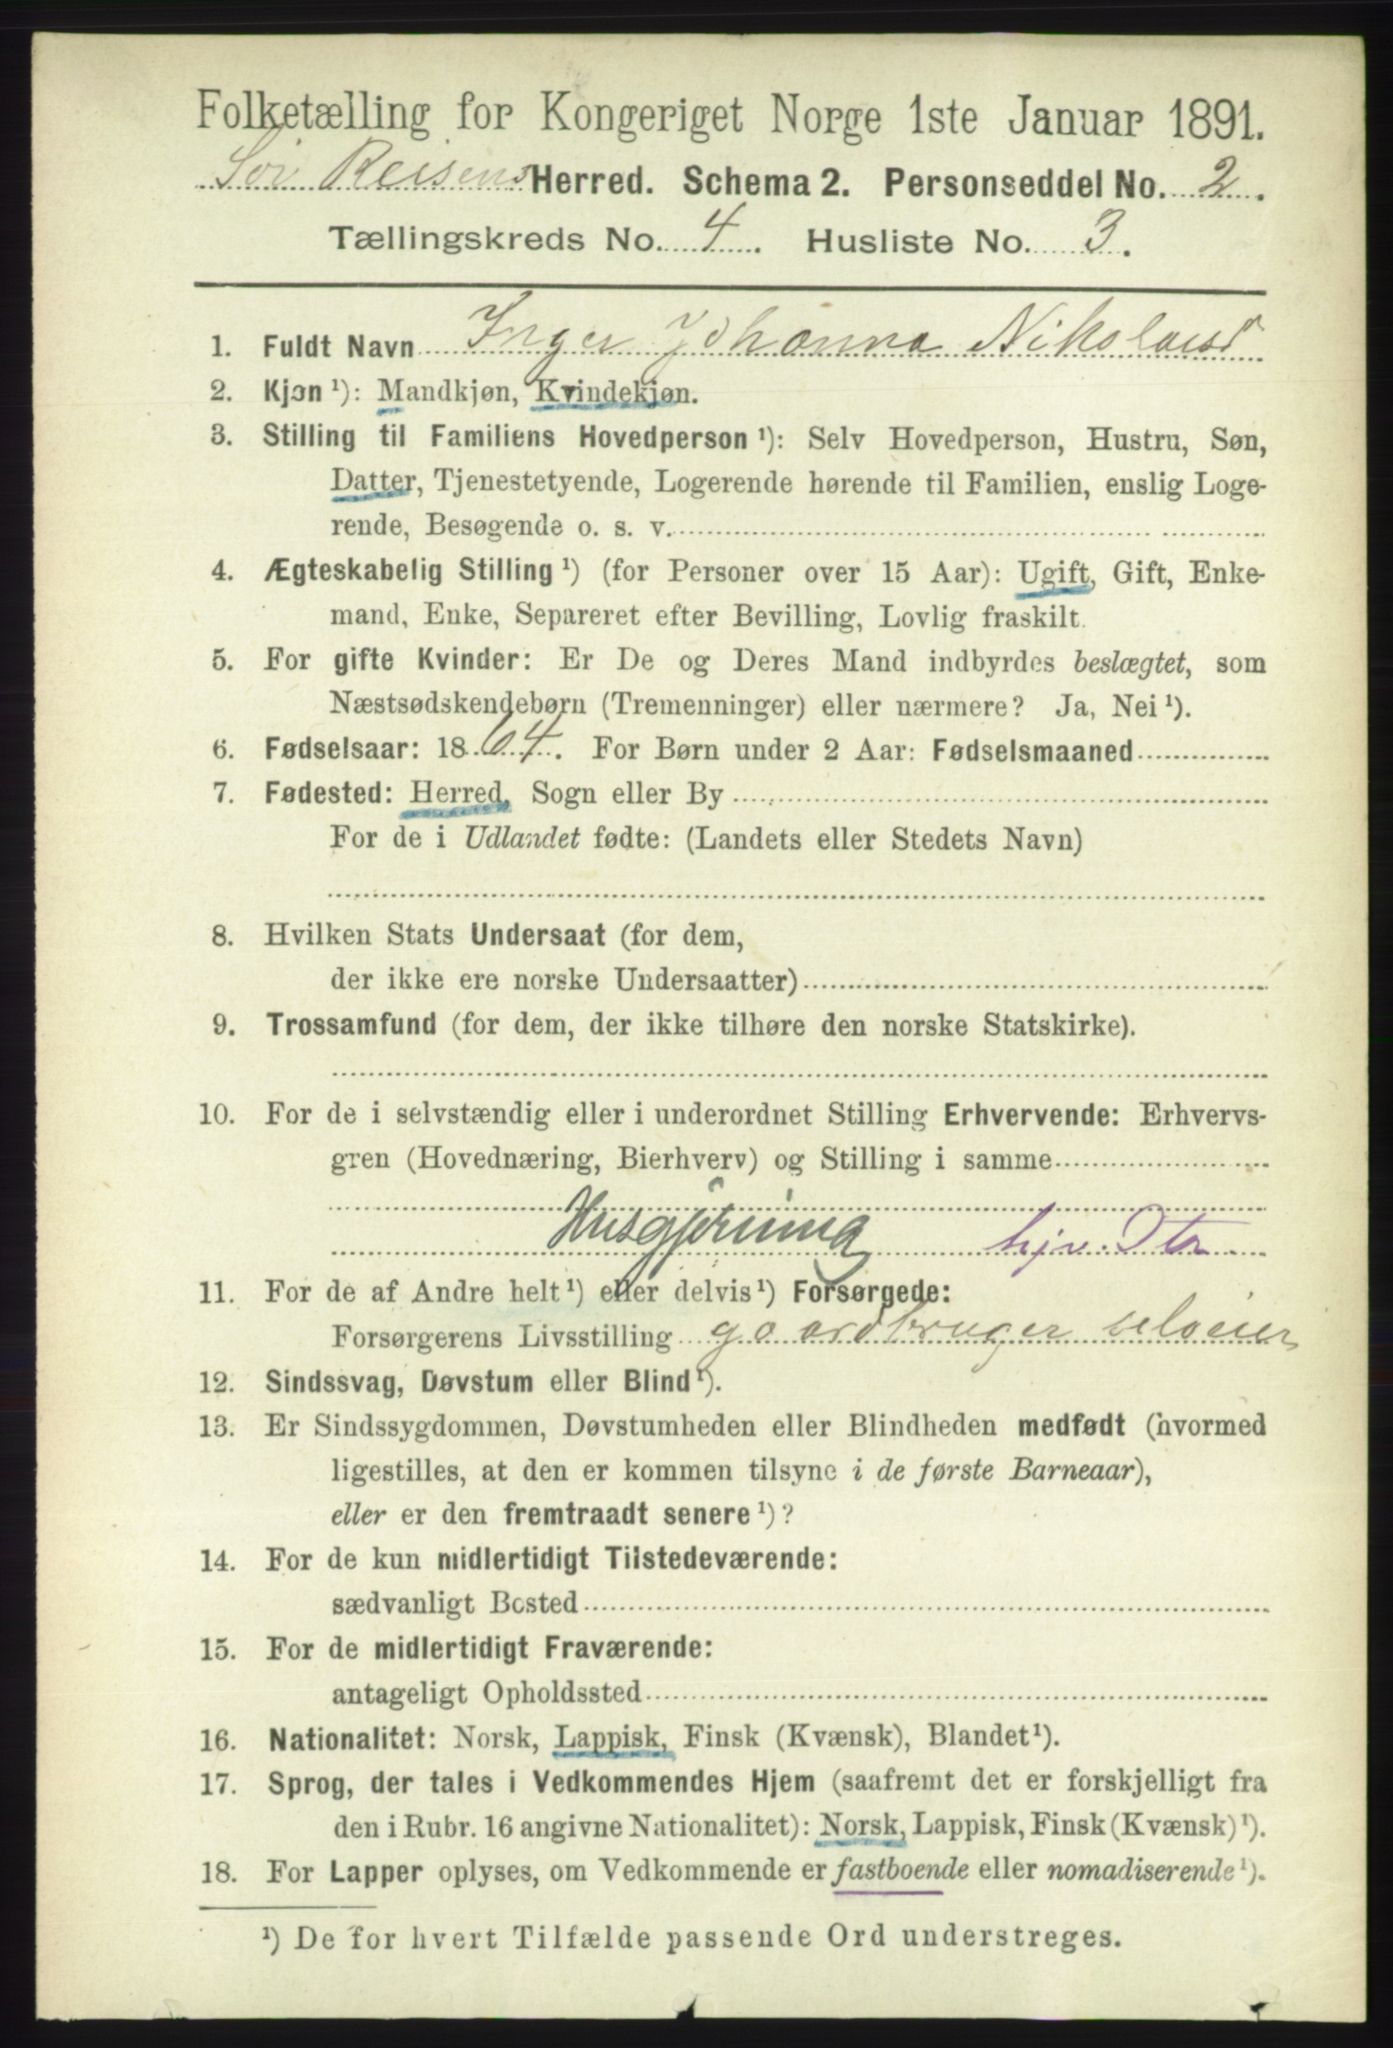 Folketælling for Kongeriget Norge 1ste Januar 1891.
Sør Reisens Herred. Schema 2. Personseddel No. 2.
Tællingskreds No. 4. Husliste No. 3.
1. Fuldt Navn Inger Johanna Nikolaisd
2. Kjøn ¹): Mandkjøn, Kvindekjøn.
3. Stilling til Familiens Hovedperson ¹): Selv Hovedperson, Hustru, Søn,
Datter, Tjenestetyende, Logerende hørende til Familien, enslig Loge-
rende, Besøgende o. s. v.
4. Ægteskabelig Stilling ¹) (for Personer over 15 Aar): Ugift, Gift, Enke-
mand, Enke, Separeret efter Bevilling, Lovlig fraskilt.
5. For gifte Kvinder: Er De og Deres Mand indbyrdes beslægtet, som
Næstsødskendebørn (Tremenninger) eller nærmere? Ja, Nei ¹).
6. Fødselsaar: 1864. For Børn under 2 Aar: Fødselsmaaned
7. Fødested: Herred, Sogn eller By
For de i Udlandet fødte: (Landets eller Stedets Navn)
8. Hvilken Stats Undersaat (for dem,
der ikke ere norske Undersaatter)
9. Trossamfund (for dem, der ikke tilhøre den norske Statskirke).
10. For de i selvstændig eller i underordnet Stilling Erhvervende: Erhvervs-
gren (Hovednæring, Bierhverv) og Stilling i samme
Husgjerning hjv.
11. For de af Andre helt ¹) eller delvis ¹) Forsørgede:
Forsørgerens Livsstilling gaardbruger selveier
12. Sindssvag, Døvstum eller Blind ¹).
13. Er Sindssygdommen, Døvstumheden eller Blindheden medfødt (hvormed
ligestilles, at den er kommen tilsyne i de første Barneaar),
eller er den fremtraadt senere ¹)?
14. For de kun midlertidigt Tilstedeværende:
sædvanligt Bosted
15. For de midlertidigt Fraværende:
antageligt Opholdssted
16. Nationalitet: Norsk, Lappisk, Finsk (Kvænsk), Blandet ¹).
17. Sprog, der tales i Vedkommendes Hjem (saafremt det er forskjelligt fra
den i Rubr. 16 angivne Nationalitet): Norsk, Lappisk, Finsk (Kvænsk) ¹).
18. For Lapper oplyses, om Vedkommende er fastboende eller nomadiserende ¹).
¹) De for hvert Tilfælde passende Ord understreges.